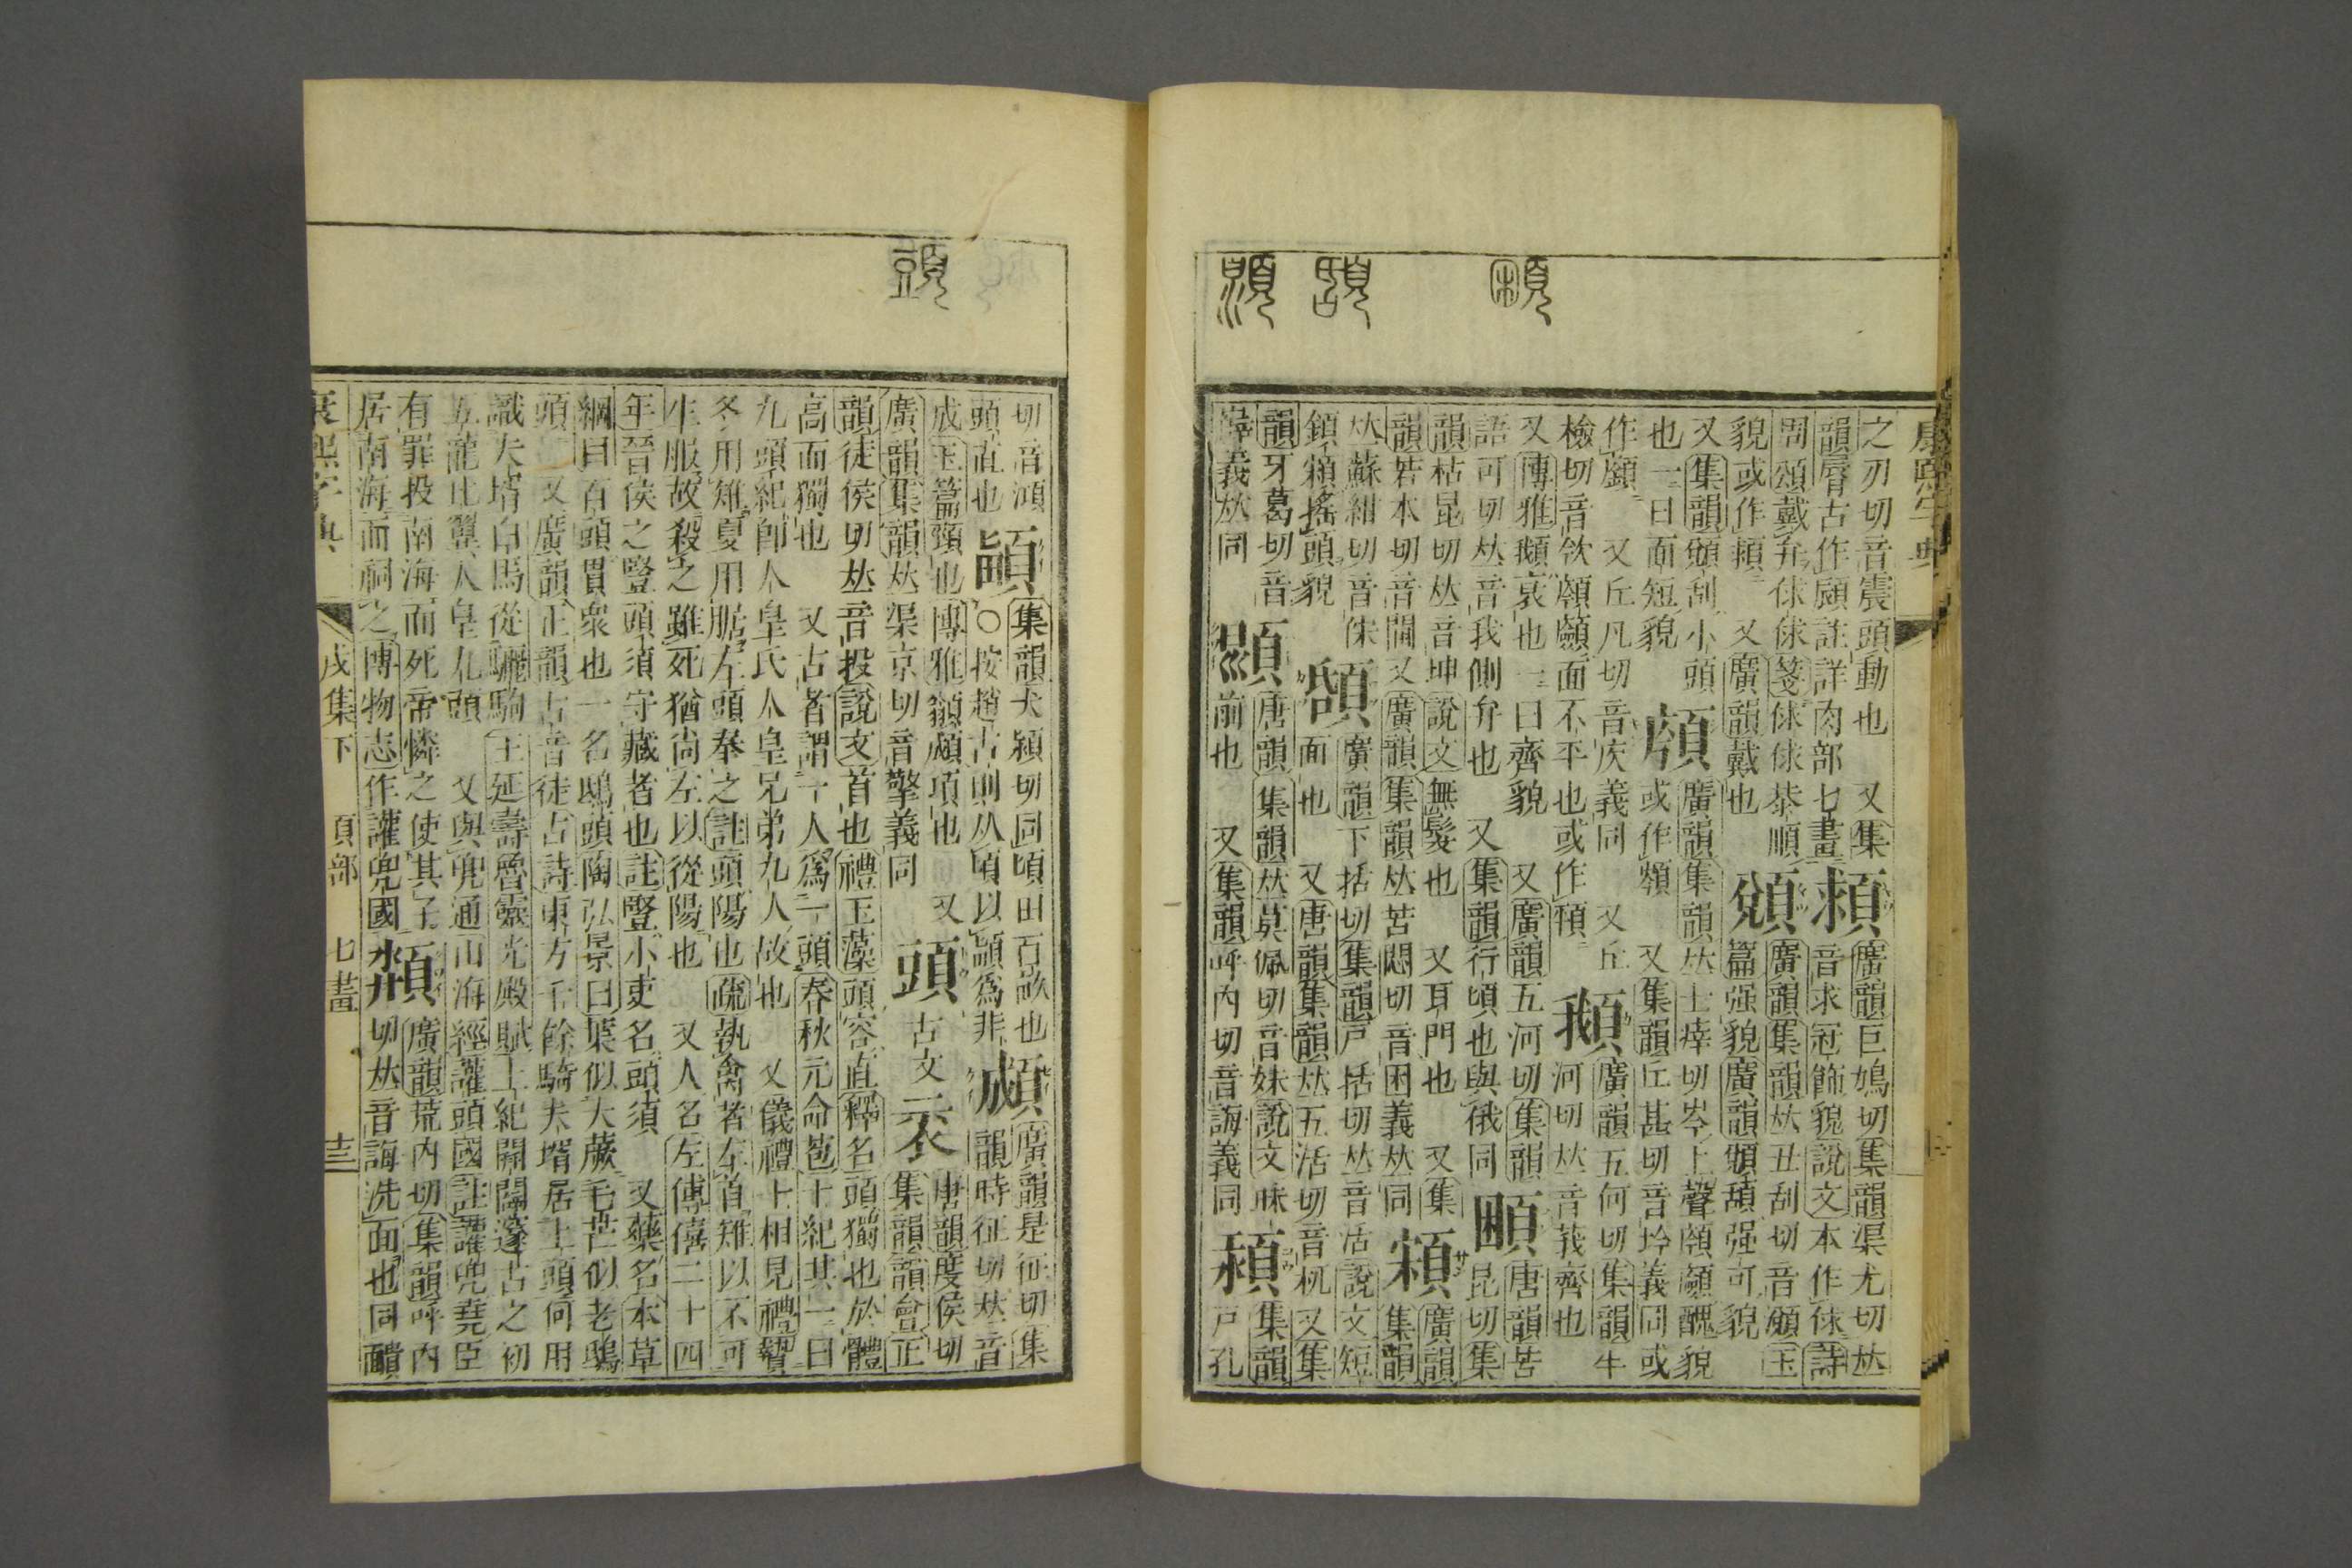 康熙字典
之刃切音震頭動也 又集
韻脣古作顧註詳肉部 七畫 頼 廣韻巨鳩切集韻渠尤切𠀤
音求冠飾貌說文本作俅詩
周頌戴弁俅俅箋俅俅恭順
貌或作頼 又廣韻戴也 頒 廣韻集韻𠀤丑刮切音頒玉
篇强貌廣韻頒頡强可貌
又集韻頒刮小頭 廣韻集韻𠀤士㾕切岑上聲顉顩醜貌
也一曰面短貌 或作顉 又集韻丘甚切音坅義同或
作顩 又丘凡切音㡾義同 又丘
檢切音欽顉顩面不平也或作頷 䫑 廣韻五何切集韻牛
河切𠀤音莪齊也
又博雅䫑哀也一曰齊貌 又廣韻五河切集韻
語可切𠀤音我側弁也 又集韻行頃也與俄同 頣 唐韻苦
昆切集
韻枯昆切𠀤音坤說文無髮也 又耳門也 又集
韻苦本切音閫又廣韻集韻𠀤苦悶切音困義𠀤同 廣韻
集韻
𠀤蘇紺切音俕
䫈頛搖頭貌 頢 廣韻下括切集韻戸括切𠀤音活說文短
面也 又唐韻集韻𠀤五活切音枂又集
韻牙葛切音
義𠀤同 唐韻集韻𠀤莫佩切音妹說文昧
前也 又集韻呼內切音誨義同 集韻
戸孔
切音澒
頭直也 顈 集韻犬潁切同頃田百畝也
○按趙古則从頃以顈爲非 䫆 廣韻是征切集
韻時征切𠀤音
成玉篇頸也博雅頟䫆項也 又
廣韻集韻𠀤渠京切音擎義同 頭 古文 𠀡 唐韻度侯切
集韻韻會正
韻徒侯切𠀤音投說文首也禮玉藻頭容直釋名頭獨也於體
高而獨也 又古者謂一人爲一頭春秋元命苞十紀其一曰
九頭紀卽人皇氏人皇兄弟九人故也 又儀禮士相見禮贄
冬用雉夏用腒左頭奉之註頭陽也疏執禽者左首雉以不可
生服故殺之雖死猶尚左以從陽也 又人名左傳僖二十四
年晉侯之豎頭須守藏者也註豎小吏名頭須 又藥名本草
綱目百頭貫衆也一名鴟頭陶弘景曰葉似大蕨毛芒似老鴟
頭 又廣韻正韻古音徒古詩東方千餘騎夫壻居上頭何用
識夫壻白馬從驪駒 王延壽魯靈光殿賦上紀開闢遂古之初
五龍比翼人皇九頭 又與兜通山海經讙頭國註讙兜堯臣
有罪投南海而死帝憐之使其子
居南海而祠之博物志作讙兜國 頮 廣韻荒內切集韻呼內
切𠀤音誨洗面也同靧
戌集下 頁部 七畫 十三